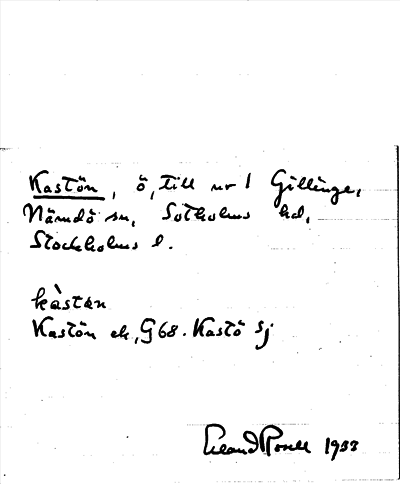 Kastön, ö, till nr 1 Gillinge,
Nämdö sn, Sotholms hd,
Stockholms l.
kàstan
Kastön ek, G68. Kastö sj
Erland Rosell 1953